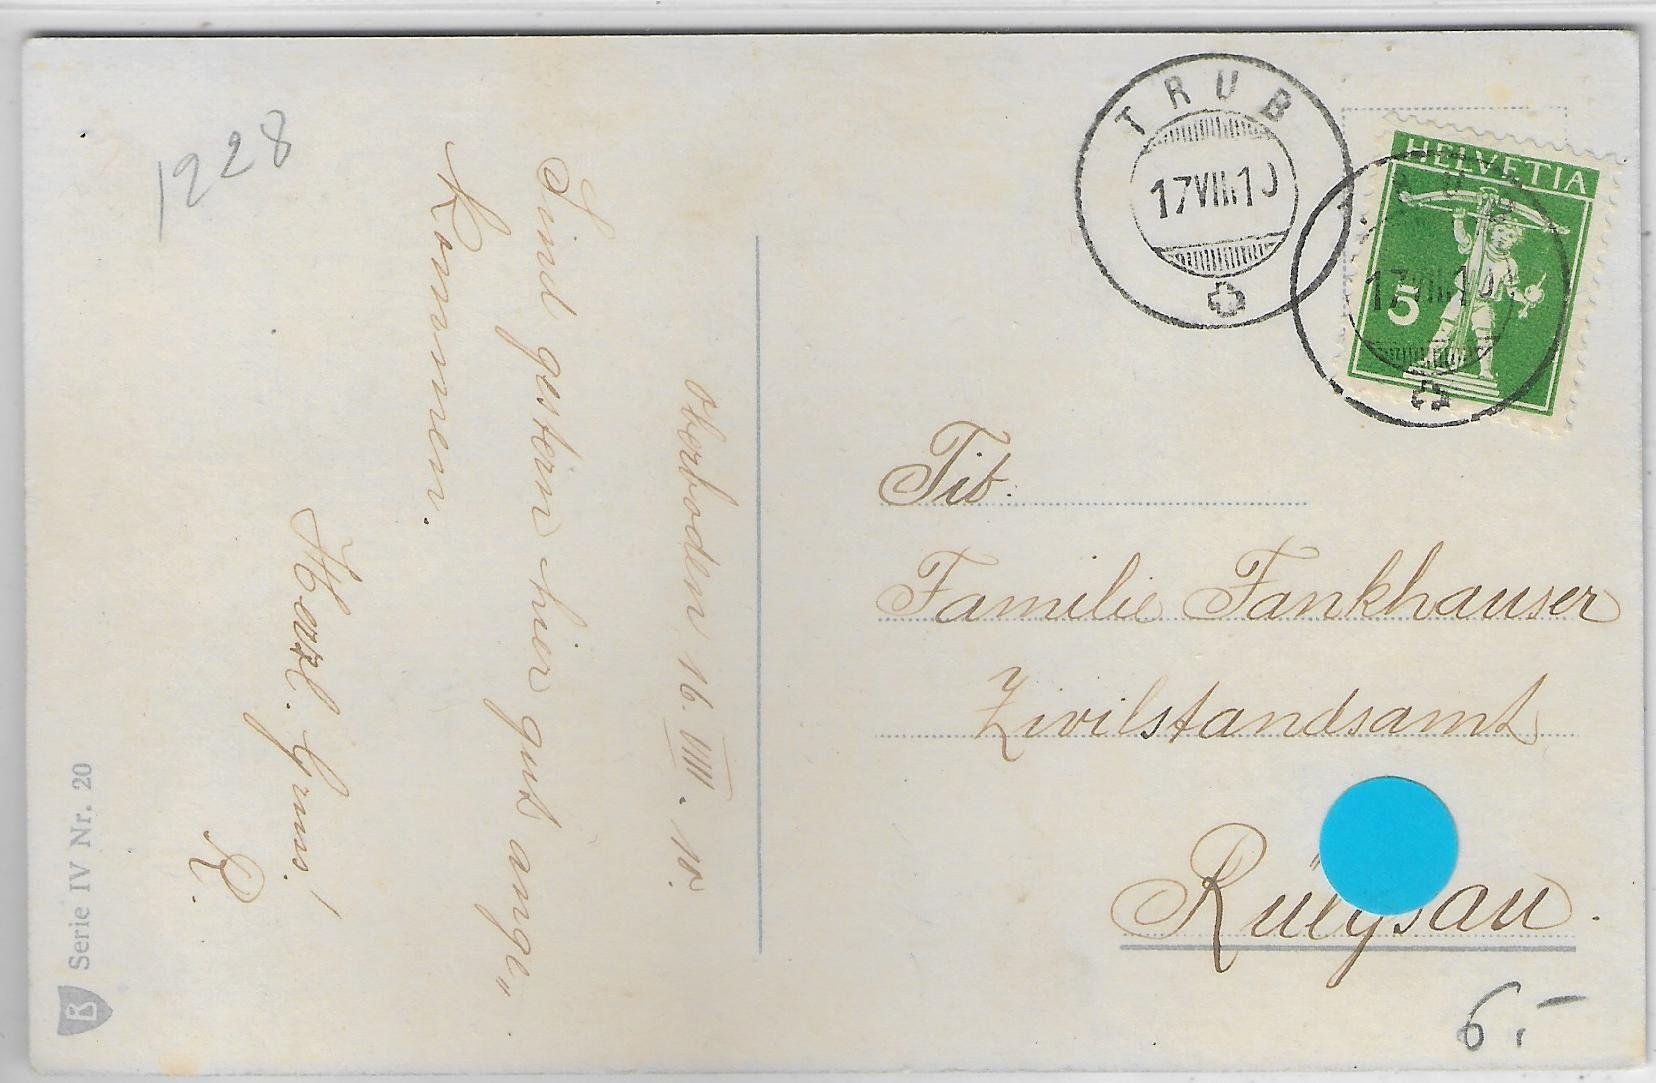 1228
Oberboden 16. VIII. 10.
Sind gestern hier gut ange„
kommen.
Herzl. Gruss!
R.
TRUB
17 VIII. 10
HELVETIA
5
17 VIII. 10
Tit.
Familie Fankhauser
Zivilstandsamt
Rüegsau.
6.–
Serie IV Nr. 20
B